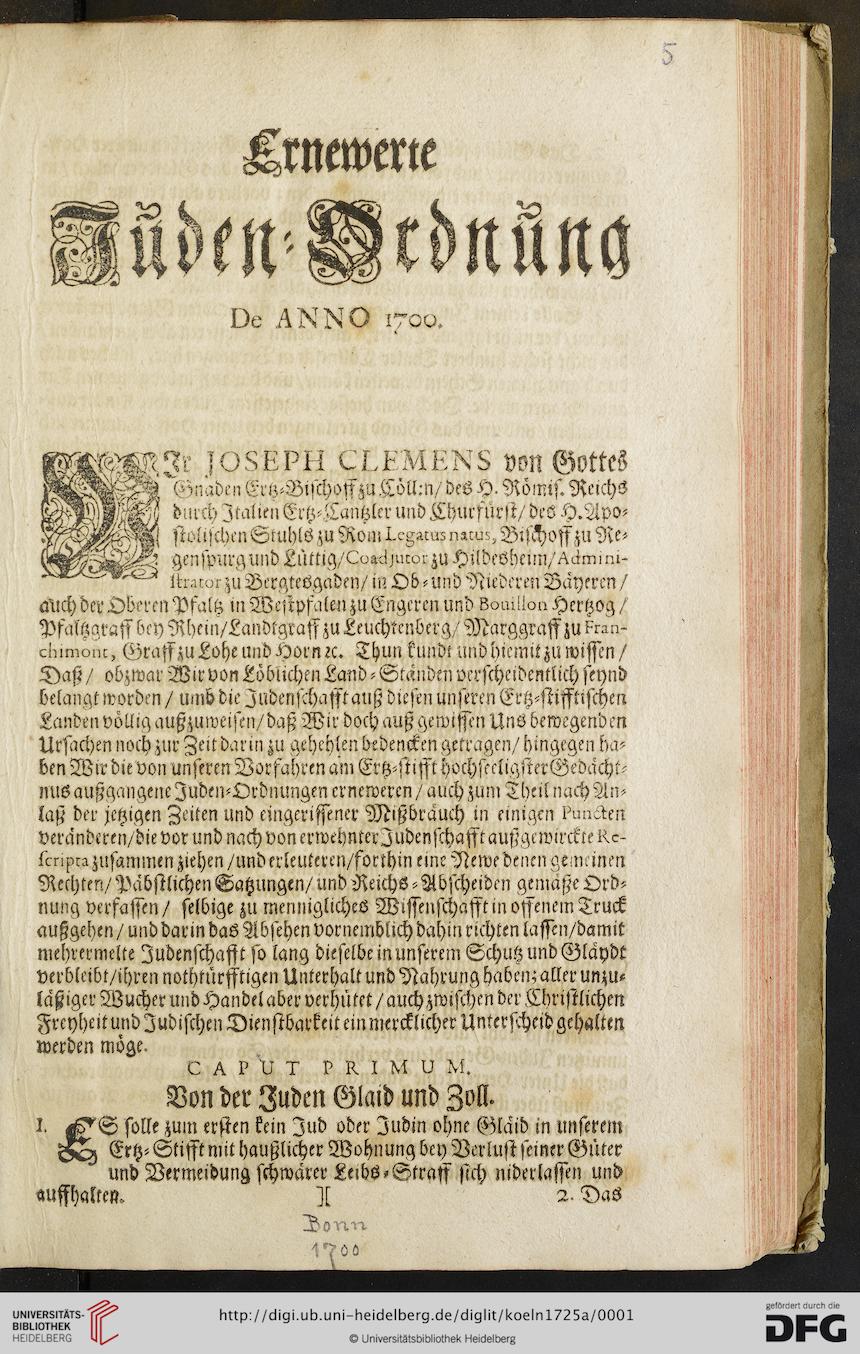 5
Ernewerte
Jŭden-Ordnŭng
De ANNO 1700.
WIr JOSEPH CLEMENS von Gottes
Gnaden Ertz-Bischoff zu Cölln/ des H. Römis. Reichs
durch Italien Ertz-Cantzler und Churfürst/ des H. Apo-
stolischen Stuhls zu Rom Legatus natus, Bischoff zu Re-
genspurg und Lüttig/ Coadjutor zu Hildesheim/ Admini-
strator zu Bergtesgaden/ in Ob- und Niederen Bäyeren /
auch der Oberen Pfaltz in Westpfalen zu Engeren und Bouillon Hertzog /
Pfaltzgraff bey Rhein/ Landtgraff zu Leuchtenberg/ Marggraff zu Fran-
chimont, Graff zu Lohe und Horn ꝛc. Thun kundt und hiemit zu wissen /
Daß / obzwar Wir von Löblichen Land-Ständen verscheidentlich seynd
belangt worden / umb die Judenschafft auß diesen unseren Ertz-stifftischen
Landen völlig außzuweisen/ daß Wir doch auß gewissen Uns bewegenden
Ursachen noch zur Zeit darin zu gehehlen bedencken getragen/ hingegen ha-
ben Wir die von unseren Vorfahren am Ertz-stifft hochseeligster Gedächt-
nus außgangene Juden-Ordnungen erneweren / auch zum Theil nach An-
laß der jetzigen Zeiten und eingerissener Mißbräuch in einigen Puncten
veränderen/ die vor und nach von erwehnter Judenschafft außgewirckte Re-
scripta zusammen ziehen / und erleuteren/ forthin eine Newe denen gemeinen
Rechten/ Päbstlichen Satzungen/ und Reichs-Abscheiden gemäße Ord-
nung verfassen / selbige zu mennigliches Wissenschafft in offenem Truck
außgehen / und darin das Absehen vornemblich dahin richten lassen/ damit
mehrermelte Judenschafft so lang dieselbe in unserem Schutz und Gläydt
verbleibt/ ihren nothtürfftigen Unterhalt und Nahrung haben; aller unzu-
läßiger Wucher und Handel aber verhütet / auch zwischen der Christlichen
Freyheit und Judischen Dienstbarkeit ein mercklicher Unterscheid gehalten
werden möge.
CAPUT PRIMUM.
Von der Juden Glaid und Zoll.
1. ES solle zum ersten kein Jud oder Judin ohne Gläid in unserem
Ertz-Stifft mit haußlicher Wohnung bey Verlust seiner Güter
und Vermeidung schwärer Leibs-Straff sich niderlassen und
auffhalten. ][ 2. Das
Bonn
1700
UNIVERSITÄTS-
BIBLIOTHEK
HEIDELBERG
http://digi.ub.uni-heidelberg.de/diglit/koeln1725a/0001
© Universitätsbibliothek Heidelberg
gefördert durch die
DFG